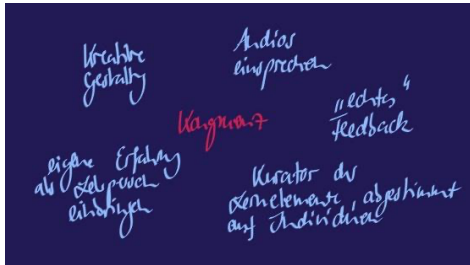 Kreative
Gestaltg
Audios
einsprechen
Kongruenz
„echtes“
Feedback
eigene Erfahrung
als Lehrperson
einbringen
Kurator der
Lernelemente, abgestimmt
auf Individuen